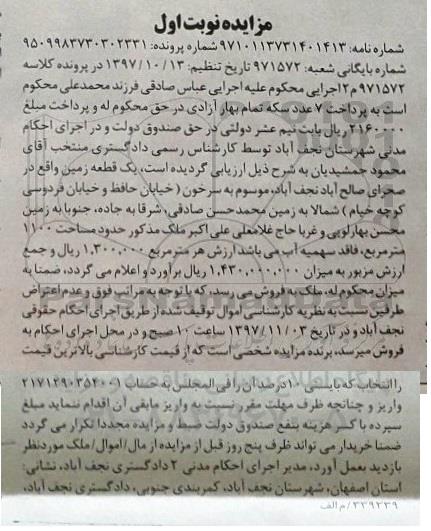 مزایده نوبت اول
شماره نامه: ۹۷۱۰۱۱۳۷۳۱۴۰۱۴۱۳ شماره پرونده: ۹۵۰۹۹۸۳۷۳۰۳۰۲۳۳۱
شماره بایگانی شعبه: ۹۷۱۵۷۲ تاریخ تنظیم: ۱۳۹۷/۱۰/۱۳ در پرونده کلاسه
۹۷۱۵۷۲ م ۲ اجرایی محکوم علیه اجرایی عباس صادقی فرزند محمدعلی محکوم
است به پرداخت ۷ عدد سکه تمام بهار آزادی در حق محکوم له و پرداخت مبلغ
۲۱۶۰۰۰۰ ریال بابت نیم عشر دولتی در حق صندوق دولت و در اجرای احکام
مدنی شهرستان نجف آباد توسط کارشناس رسمی دادگستری منتخب آقای
محمود جمشیدیان به شرح ذیل ارزیابی گردیده است، یک قطعه زمین واقع در
صحرای صالح آباد نجف آباد، موسوم به سرخون (خیابان حافظ و خیابان فردوسی
کوچه خیام) شمالا به زمین محمدحسن صادقی، شرقا به جاده، جنوبا به زمین
محسن بهارلویی و غربا حاج غلامعلی علی اکبر ملک مذکور حدود مساحت ۱۱۰۰
مترمربع، فاقد سهمیه آب می باشد ارزش هر مترمربع ۱,۳۰۰,۰۰۰ ریال و جمع
ارزش مزبور به میزان ۱,۴۳۰,۰۰۰,۰۰۰ ریال برآورد و اعلام می گردد، ضمنا به
میزان محکوم له، ملک به فروش می رسد، که با توجه به مراتب فوق و عدم اعتراض
طرفین نسبت به نظریه کارشناسی اموال توقیف شده از طریق اجرای احکام حقوقی
نجف آباد و در تاریخ ۱۳۹۷/۱۱/۰۳ ساعت ۱۰ صبح و در محل اجرای احکام به
فروش میرسد، برنده مزایده شخصی است که از قیمت کارشناسی بالاترین قیمت
را انتخاب که بایستی ۱۰ درصد آن را فی المجلس به حساب ۲۱۷۱۲۹۰۳۵۲۰۰۱
واریز و چنانچه ظرف مهلت مقرر نسبت به واریز مابقی آن اقدام ننماید مبلغ
سپرده با کسر هزینه بنفع صندوق دولت ضبط و مزایده مجددا تکرار می گردد
ضمنا خریدار می تواند ظرف پنج روز قبل از مزایده از مال/اموال/ملک موردنظر
بازدید بعمل آورد، مدیر اجرای احکام مدنی ۲ دادگستری نجف آباد، نشانی:
استان اصفهان، شهرستان نجف آباد، کمربندی جنوبی، دادگستری نجف آباد،
۳۳۹۲۳۹/م الف